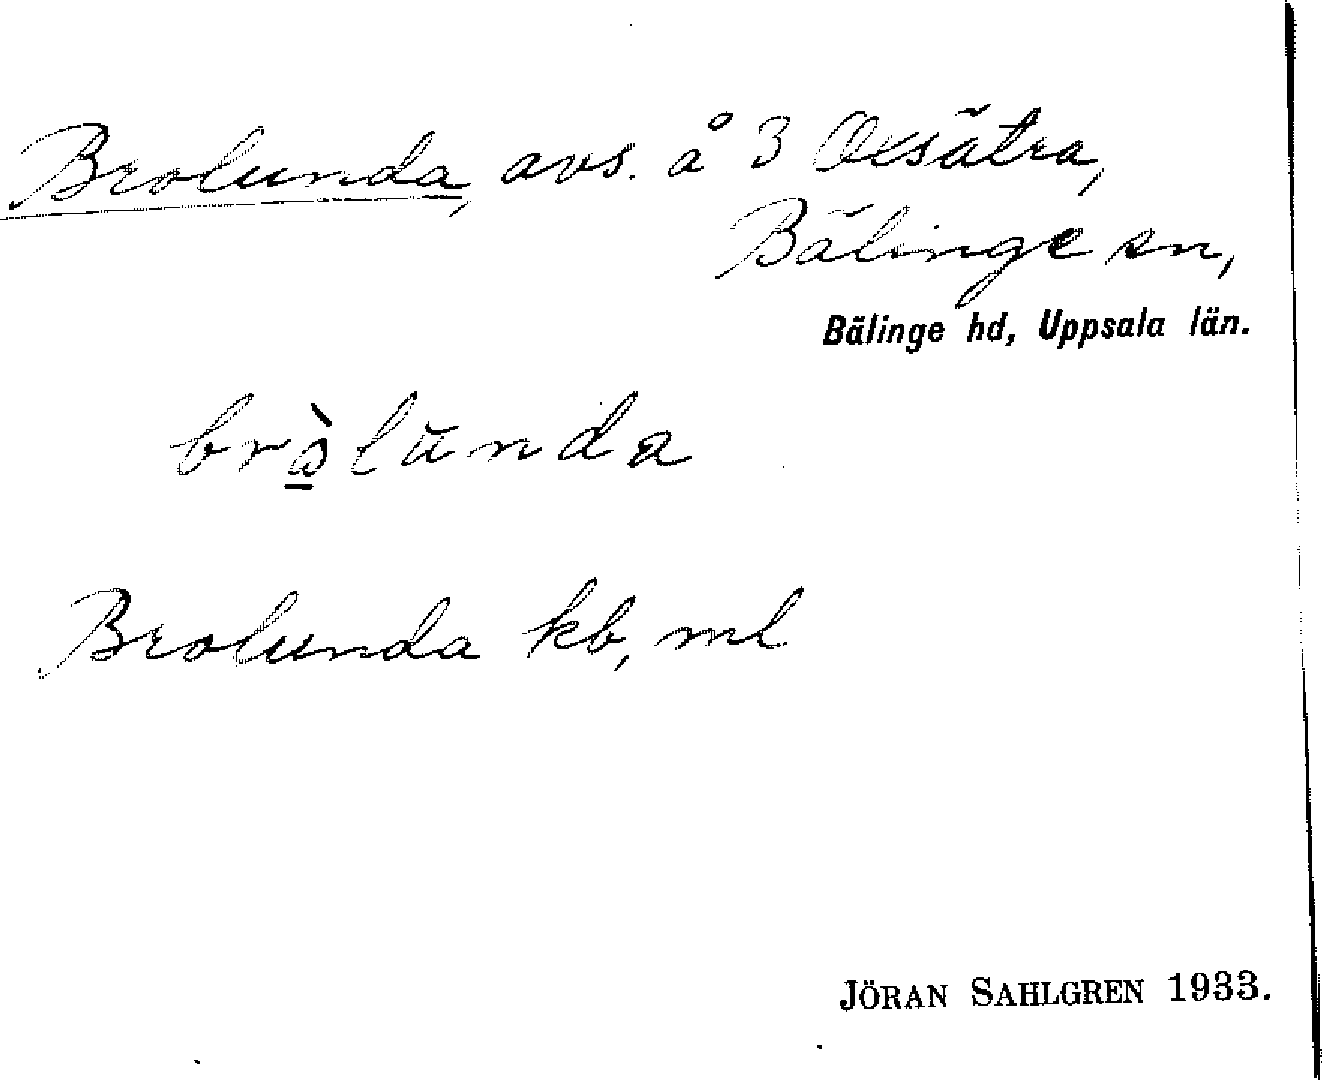 Brolunda, avs. å 3 Oxsätra,
Bälinge sn,
Bälinge hd, Uppsala län.
brò̱lŭnda
Brolunda kb, ml
JÖRAN SAHLGREN 1933.